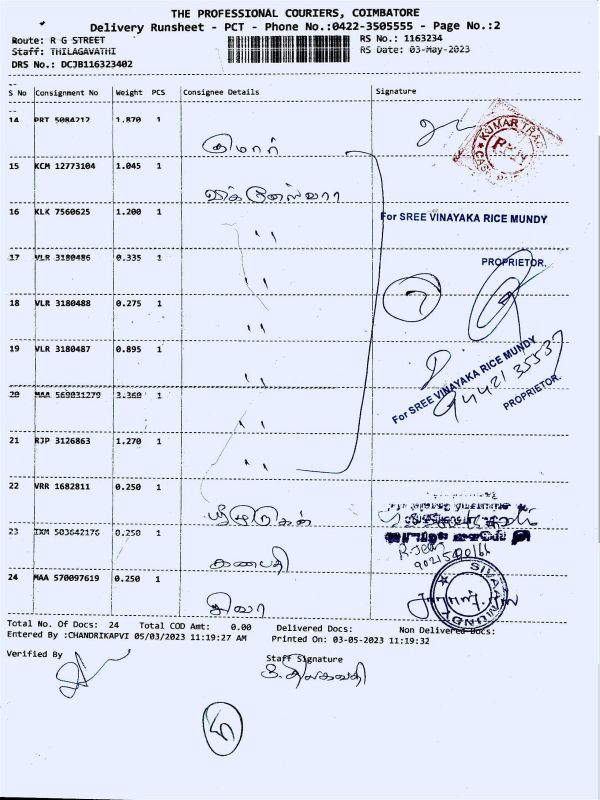 THE PROFESSIONAL COURIERS, COIMBATORE
Delivery Runsheet - PCT - Phone No.:0422-3505555 - Page No.:2
Route: R G STREET RS No.: 1163234
Staff: THILAGAVATHI RS Date: 03-May-2023
DRS No.: DCJB116323402
S No Consignment No Weight PCS Consignee Details Signature
14 PRT 5084212 1.870 1
குமார்
KUMAR
15 KCM 12773104 1.045 1
விக்னேஸ்வரா
16 KLK 7560625 1.200 1
For SREE VINAYAKA RICE MUNDY
" "
17 VLR 3180486 0.335 1
PROPRIETOR.
" "
7
18 VLR 3180488 0.275 1
" "
19 VLR 3180487 0.895 1
For SREE VINAYAKA RICE MUNDY
" "
PROPRIETOR.
20 MAA 569031279 3.360 1
" "
21 RJP 3126863 1.270 1
" "
22 VRR 1682811 0.250 1
23 IXM 503642176 0.250 1
கணபதி
24 MAA 570097619 0.250 1
சிவா
Total No. Of Docs: 24 Total COD Amt: 0.00 Delivered Docs: Non Delivered Docs:
Entered By :CHANDRIKAPVI 05/03/2023 11:19:27 AM Printed On: 03-05-2023 11:19:32
Verified By Staff Signature